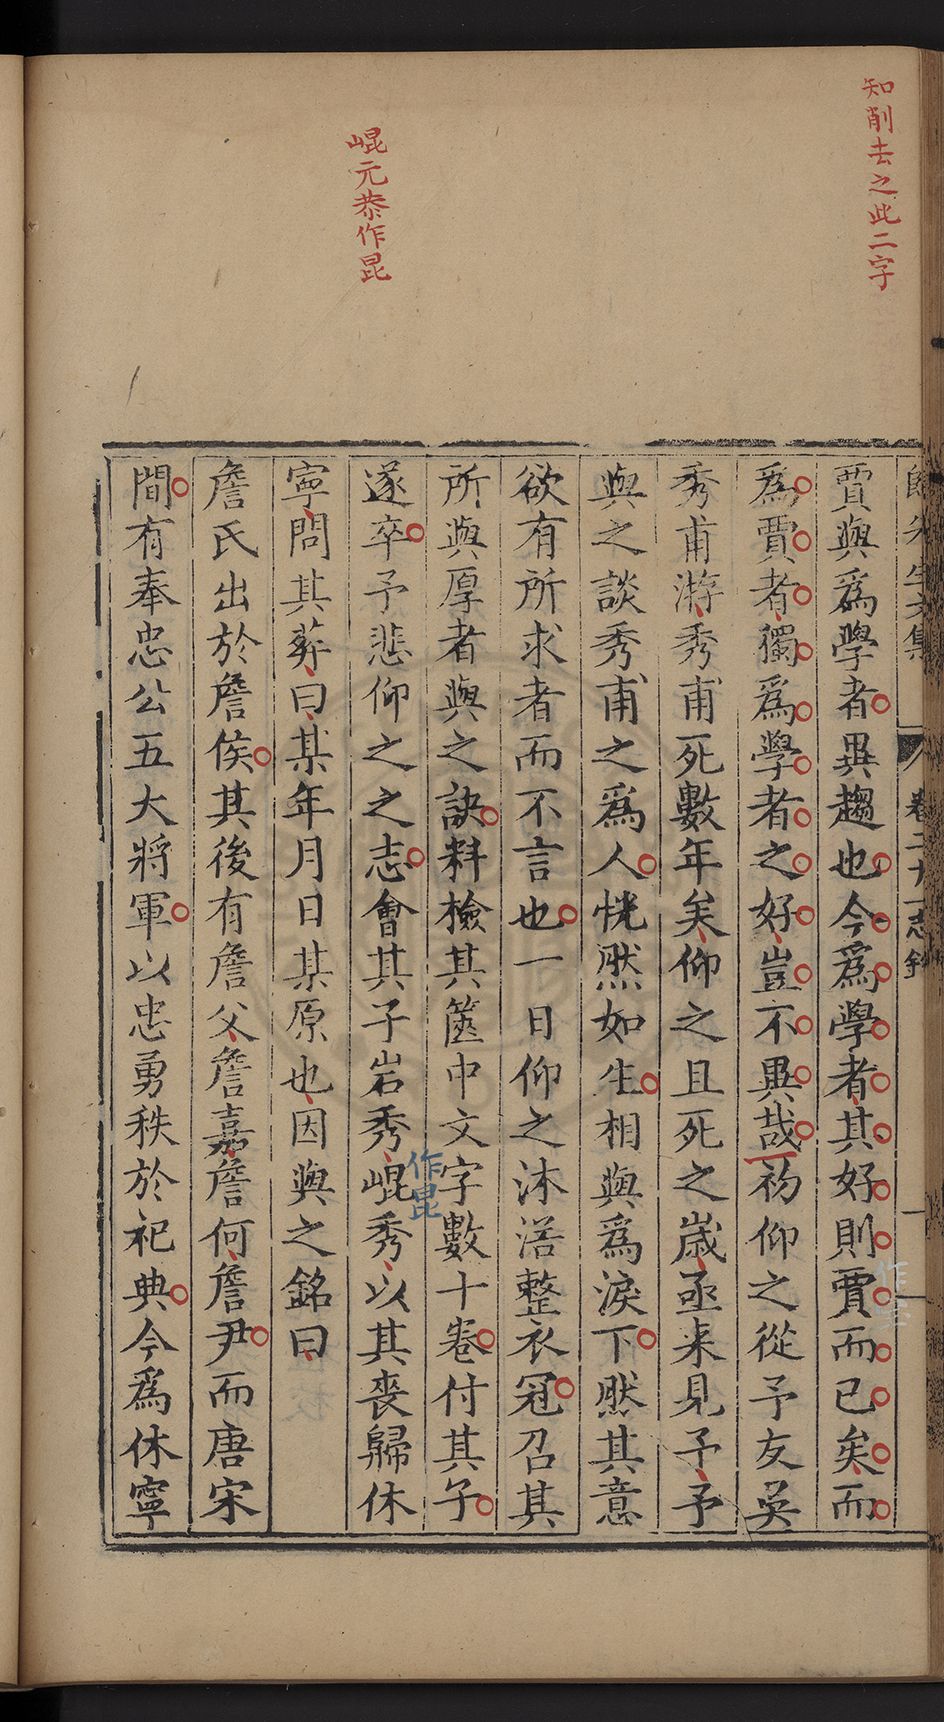 知削去之此二字
崐元恭作昆
卷二十一志銘
賈與爲學者異趨也今爲學者其好則賈而已矣而
爲賈者獨爲學者之好豈不異哉初仰之從予友吳
秀甫游秀甫死數年矣仰之且死之歲亟来見予予
與之談秀甫之爲人恍然如生相與爲淚下然其意
欲有所求者而不言也一日仰之沐浴整衣冠召其
所與厚者與之訣料檢其篋中文字數十卷付其子
作昆
遂卒予悲仰之之志會其子岩秀崐秀以其喪歸休
寧問其葬曰某年月日某原也因與之銘曰
詹氏出於詹侯其後有詹父詹嘉詹何詹尹而唐宋
間有奉忠公五大將軍以忠勇秩於祀典今爲休寧